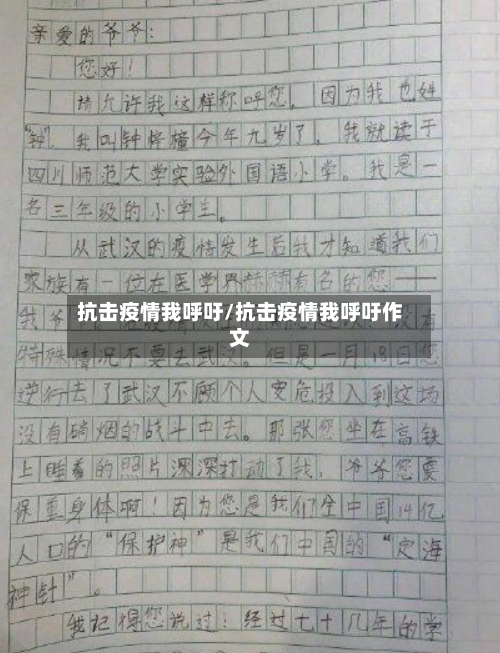 亲爱的爷爷：
您好！
请允许我这样称呼您，因为我也姓
“钟”，我叫钟梓橦今年九岁了，我就读于
四川师范大学实验外国语小学。我是一
名三年级的小学生。
从武汉的疫情发生后我才知道我们
家族有一位在医学界赫赫有名的您——
抗击疫情我呼吁/抗击疫情我呼吁作
文
特殊情况不要去武汉。但是一月18日您
逆行去了武汉不顾个人安危投入到这场
没有硝烟的战斗中去。那张您坐在高铁
上睡着的照片深深打动了我，爷爷您要
保重身体啊！因为您是我们全中国14亿
人口的“保护神”是我们中国的“定海
神针”。
我记得您说过：经过七十几年的学